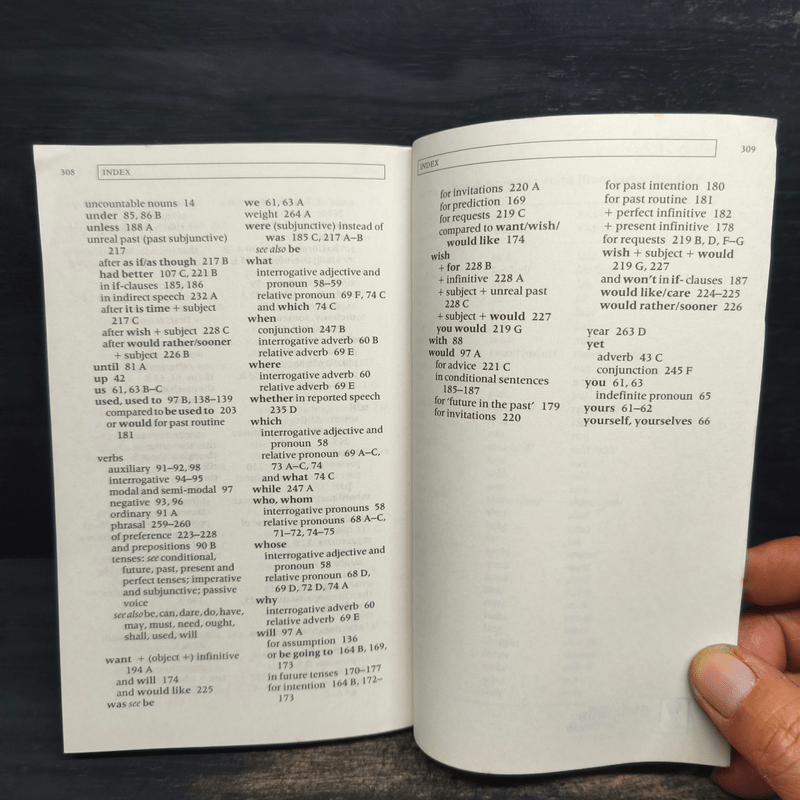 308
INDEX
uncountable nouns 14
under 85, 86 B
unless 188 A
unreal past (past subjunctive)
217
after as if/as though 217 B
had better 107 C, 221 B
in if-clauses 185, 186
in indirect speech 232 A
after it is time + subject
217 C
after wish + subject 228 C
after would rather/sooner
+ subject 226 B
until 81 A
up 42
us 61, 63 B–C
used, used to 97 B, 138–139
compared to be used to 203
or would for past routine
181
verbs
auxiliary 91–92, 98
interrogative 94–95
modal and semi-modal 97
negative 93, 96
ordinary 91 A
phrasal 259–260
of preference 223–228
and prepositions 90 B
tenses: see conditional,
future, past, present and
perfect tenses; imperative
and subjunctive; passive
voice
see also be, can, dare, do, have,
may, must, need, ought,
shall, used, will
want + (object +) infinitive
194 A
and will 174
and would like 225
was see be
we 61, 63 A
weight 264 A
were (subjunctive) instead of
was 185 C, 217 A–B
see also be
what
interrogative adjective and
pronoun 58–59
relative pronoun 69 F, 74 C
and which 74 C
when
conjunction 247 B
interrogative adverb 60 B
relative adverb 69 E
where
interrogative adverb 60
relative adverb 69 E
whether in reported speech
235 D
which
interrogative adjective and
pronoun 58
relative pronoun 69 A–C,
73 A–C, 74
and what 74 C
while 247 A
who, whom
interrogative pronouns 58
relative pronouns 68 A–C,
71–72, 74–75
whose
interrogative adjective and
pronoun 58
relative pronoun 68 D,
69 D, 72 D, 74 A
why
interrogative adverb 60
relative adverb 69 E
will 97 A
for assumption 136
or be going to 164 B, 169,
173
in future tenses 170–177
for intention 164 B, 172–
173
309
INDEX
for invitations 220 A
for prediction 169
for requests 219 C
compared to want/wish/
would like 174
wish
+ for 228 B
+ infinitive 228 A
+ subject + unreal past
228 C
+ subject + would 227
you would 219 G
with 88
would 97 A
for advice 221 C
in conditional sentences
185–187
for 'future in the past' 179
for invitations 220
for past intention 180
for past routine 181
+ perfect infinitive 182
+ present infinitive 178
for requests 219 B, D, F–G
wish + subject + would
219 G, 227
and won't in if- clauses 187
would like/care 224–225
would rather/sooner 226
year 263 D
yet
adverb 43 C
conjunction 245 F
you 61, 63
indefinite pronoun 65
yours 61–62
yourself, yourselves 66